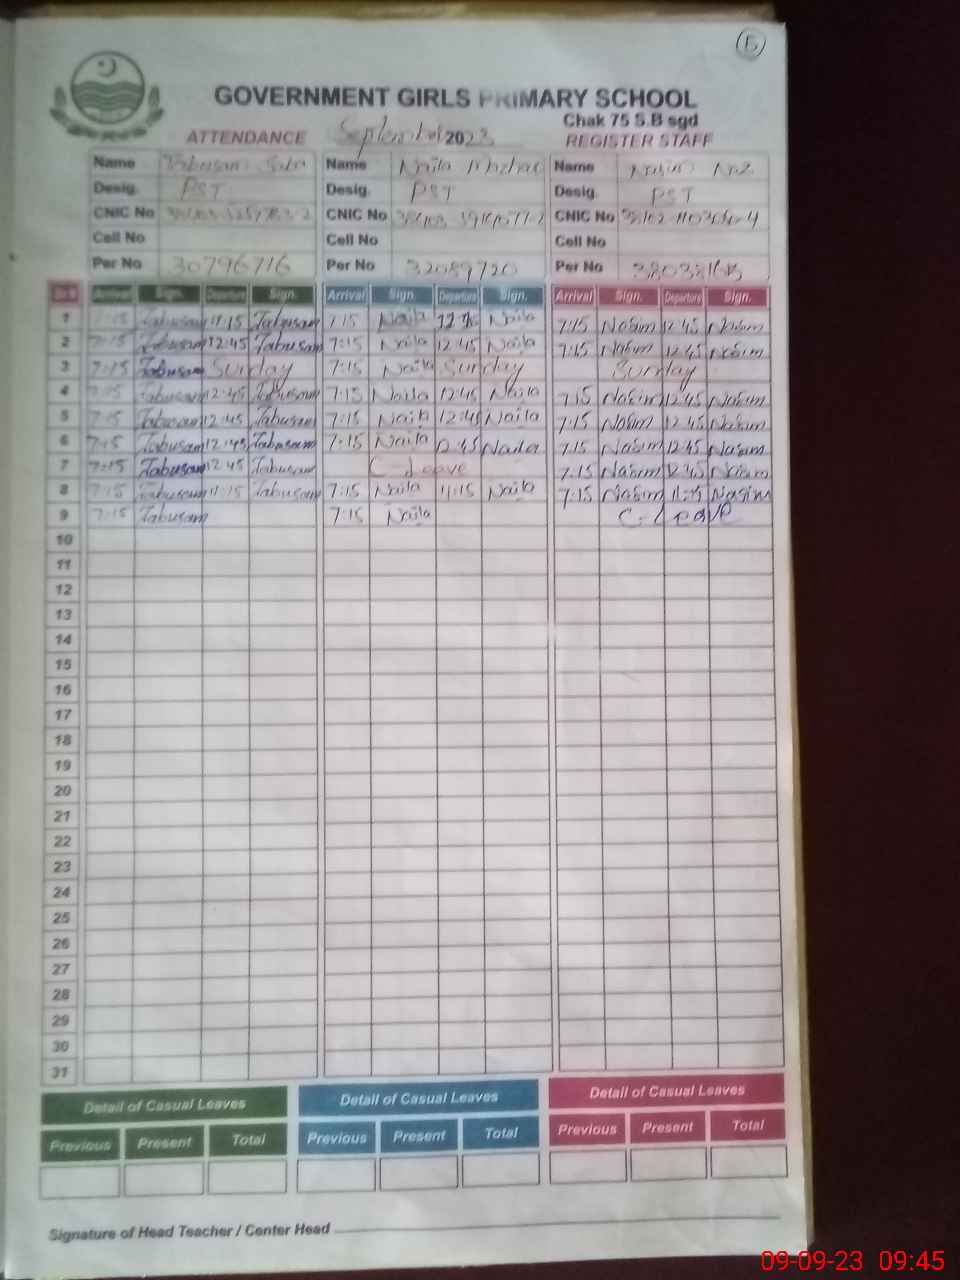 5
GOVERNMENT GIRLS PRIMARY SCHOOL
Chak 75 S.B sgd
ATTENDANCE September 2023 REGISTER STAFF
Name Tabusam Name Naila Mazhar Name Nasim Naz
Desig. PST Desig. PST Desig. PST
CNIC No CNIC No CNIC No
Cell No Cell No Cell No
Per No 30796716 Per No 32089720 Per No
Arrival Sign. Departure Sign. Arrival Sign. Departure Sign. Arrival Sign. Departure Sign.
1 7:15 Tabusam 11:15 Tabusam 7:15 Naila Naila 7:15 Nasim 12:45 Nasim
2 7:15 Tabusam 12:45 Tabusam 7:15 Naila 12:45 Naila 7:15 Nasim 12:45 Nasim
3 7:15 Tabusam Sunday 7:15 Naila Sunday Sunday
4 7:15 Tabusam 12:45 Tabusam 7:15 Naila 12:45 Naila 7:15 Nasim 12:45 Nasim
5 7:15 Tabusam 12:45 Tabusam 7:15 Naila 12:45 Naila 7:15 Nasim 12:45 Nasim
6 7:15 Tabusam 12:45 Tabusam 7:15 Naila 12:45 Naila 7:15 Nasim 12:45 Nasim
7 7:15 Tabusam 12:45 Tabusam C-Leave 7:15 Nasim 12:45 Nasim
8 7:15 Tabusam 11:15 Tabusam 7:15 Naila 11:15 Naila 7:15 Nasim 11:15 Nasim
9 7:15 Tabusam 7:15 Naila C-Leave
10
11
12
13
14
15
16
17
18
19
20
21
22
23
24
25
26
27
28
29
30
31
Detail of Casual Leaves Detail of Casual Leaves Detail of Casual Leaves
Previous Present Total Previous Present Total Previous Present Total
Signature of Head Teacher / Center Head
09-09-23 09:45